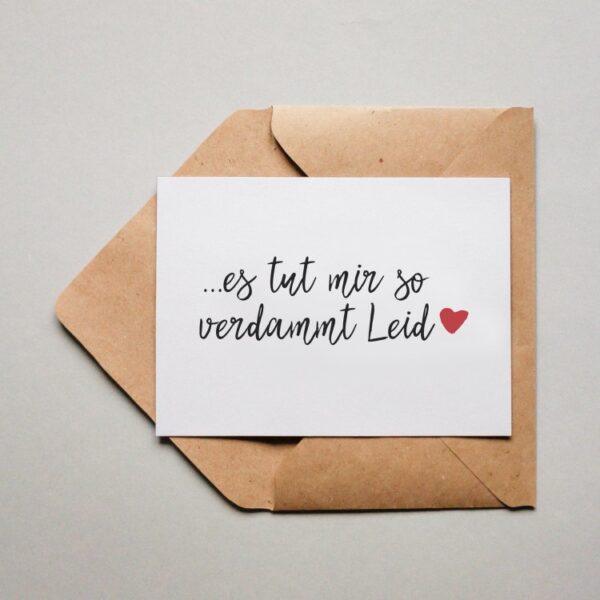 ...es tut mir so
verdammt Leid